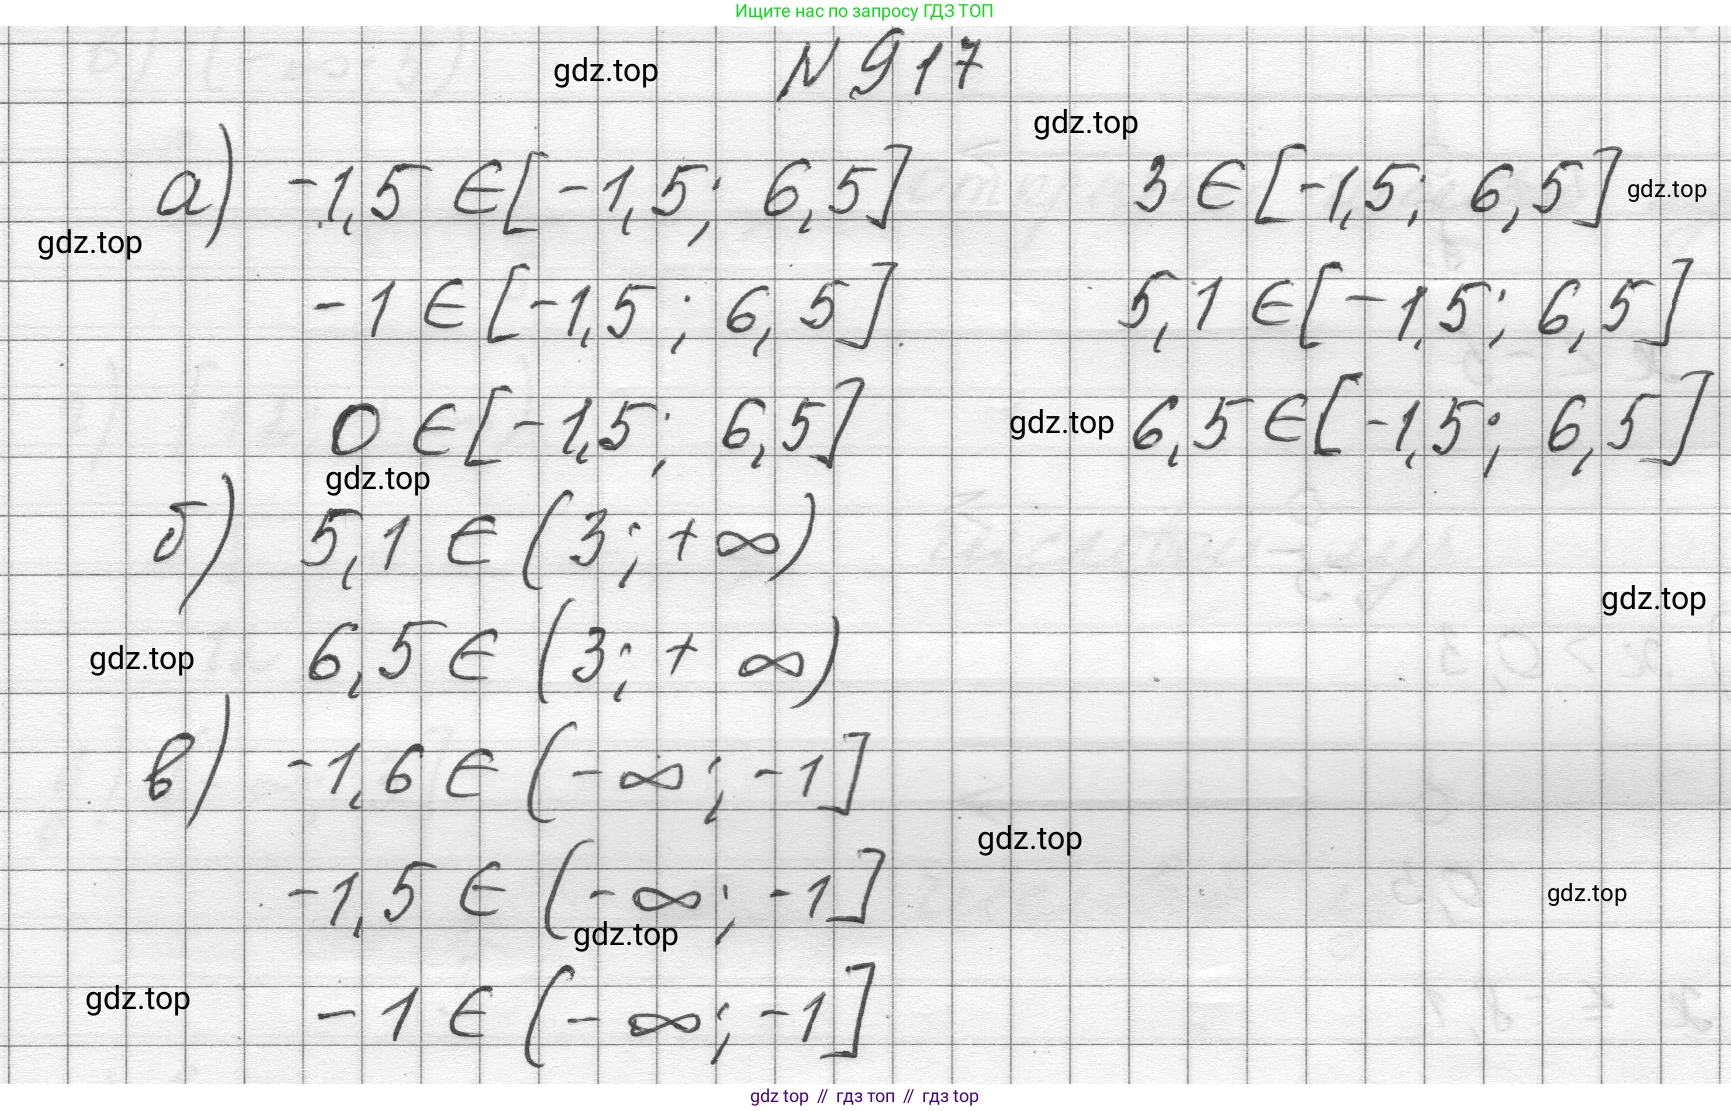 Ищите нас по запросу ГДЗ ТОП
N 917
gdz.top
gdz.top
а) -1,5 ∈ [-1,5; 6,5] 3 ∈ [-1,5; 6,5] gdz.top
gdz.top
-1 ∈ [-1,5; 6,5] 5,1 ∈ [-1,5; 6,5]
0 ∈ [-1,5; 6,5] gdz.top 6,5 ∈ [-1,5; 6,5]
gdz.top
б) 5,1 ∈ (3; +∞)
gdz.top
gdz.top 6,5 ∈ (3; +∞)
в) -1,6 ∈ (-∞; -1]
gdz.top
-1,5 ∈ (-∞; -1] gdz.top
gdz.top
gdz.top -1 ∈ (-∞; -1]
gdz top // гдз топ // гдз top